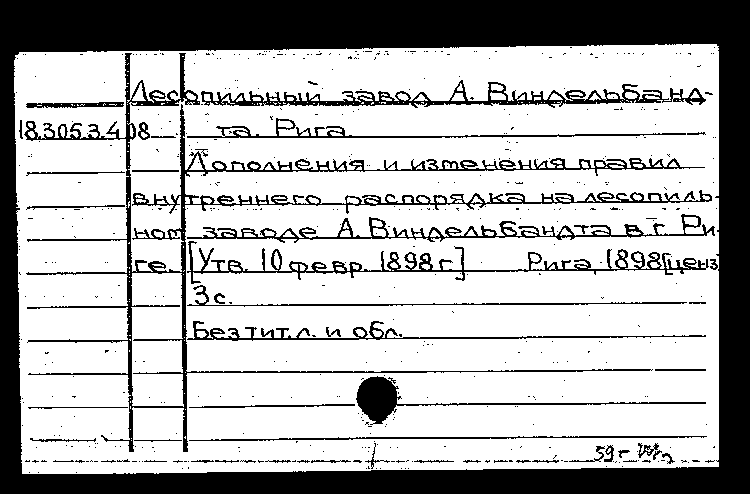 Лесопильный завод А. Виндельбанд-
18.305.3.408 та. Рига.
Дополнения и изменения правил
внутреннего распорядка на лесопиль-
ном заводе А. Виндельбандта в г. Ри-
ге. [Утв. 10 февр. 1898 г.] Рига, 1898 [ценз
3 с.
Без тит. л. и обл.
59-